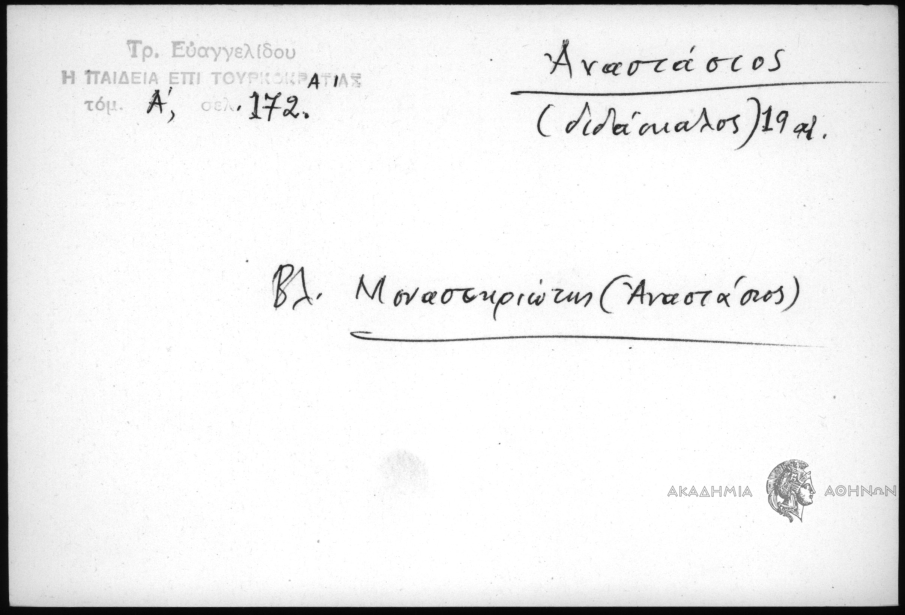 Τρ. Εὐαγγελίδου
Η ΠΑΙΔΕΙΑ ΕΠΙ ΤΟΥΡΚΟΚΡΑΤΙΑΣ
τόμ. Α', σελ. 172.
Ἀναστάσιος
(διδάσκαλος) 19 αἰ.
Βλ. Μοναστηριώτης (Ἀναστάσιος)
ΑΚΑΔΗΜΙΑ ΑΘΗΝΩΝ